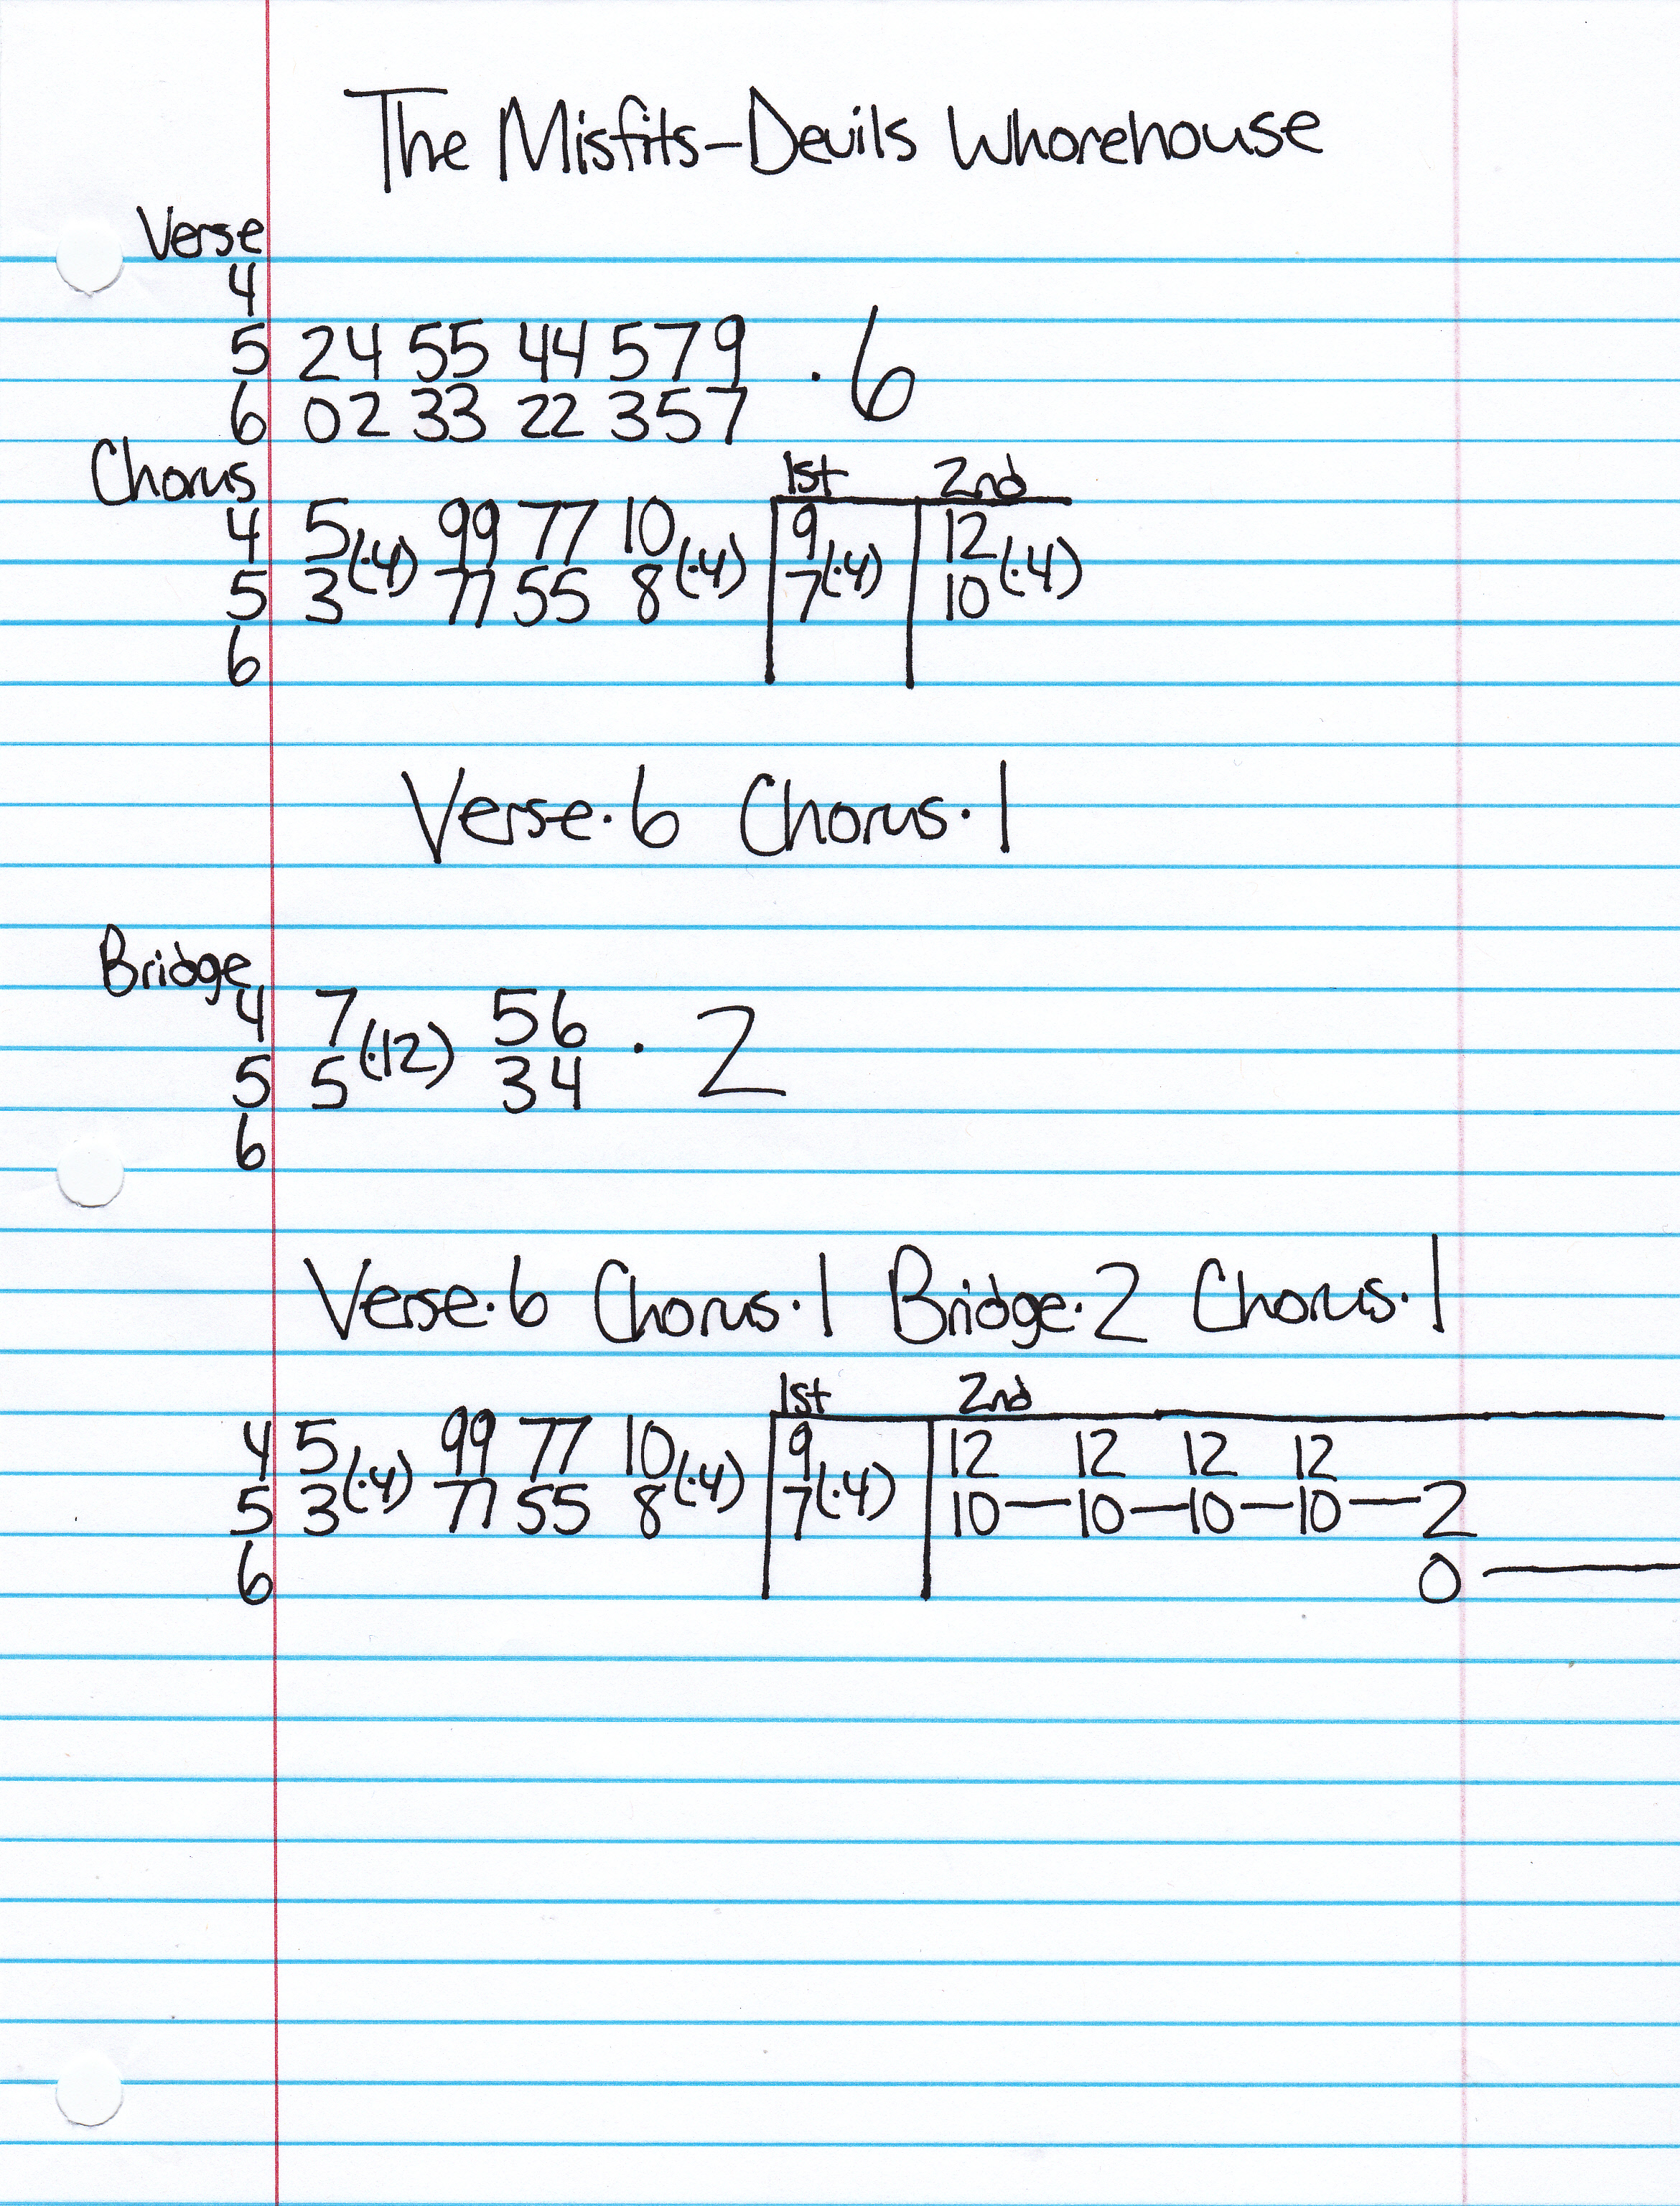 The Misfits-Devils Whorehouse
Verse
4
5 24 55 44 579 · 6
6 02 33 22 357
Chorus 1st 2nd
4 5 99 77 10 9 12
(·4) (·4) (·4) (·4)
5 3 77 55 8 7 10
6
Verse·6 Chorus·1
Bridge
4 7 56
(·12) · 2
5 5 34
6
Verse·6 Chorus·1 Bridge·2 Chorus·1
1st 2nd
4 5 99 77 10 9 12 12 12 12
(·4) (·4) (·4)
5 3 77 55 8 7 10—10—10—10—2
6 0—